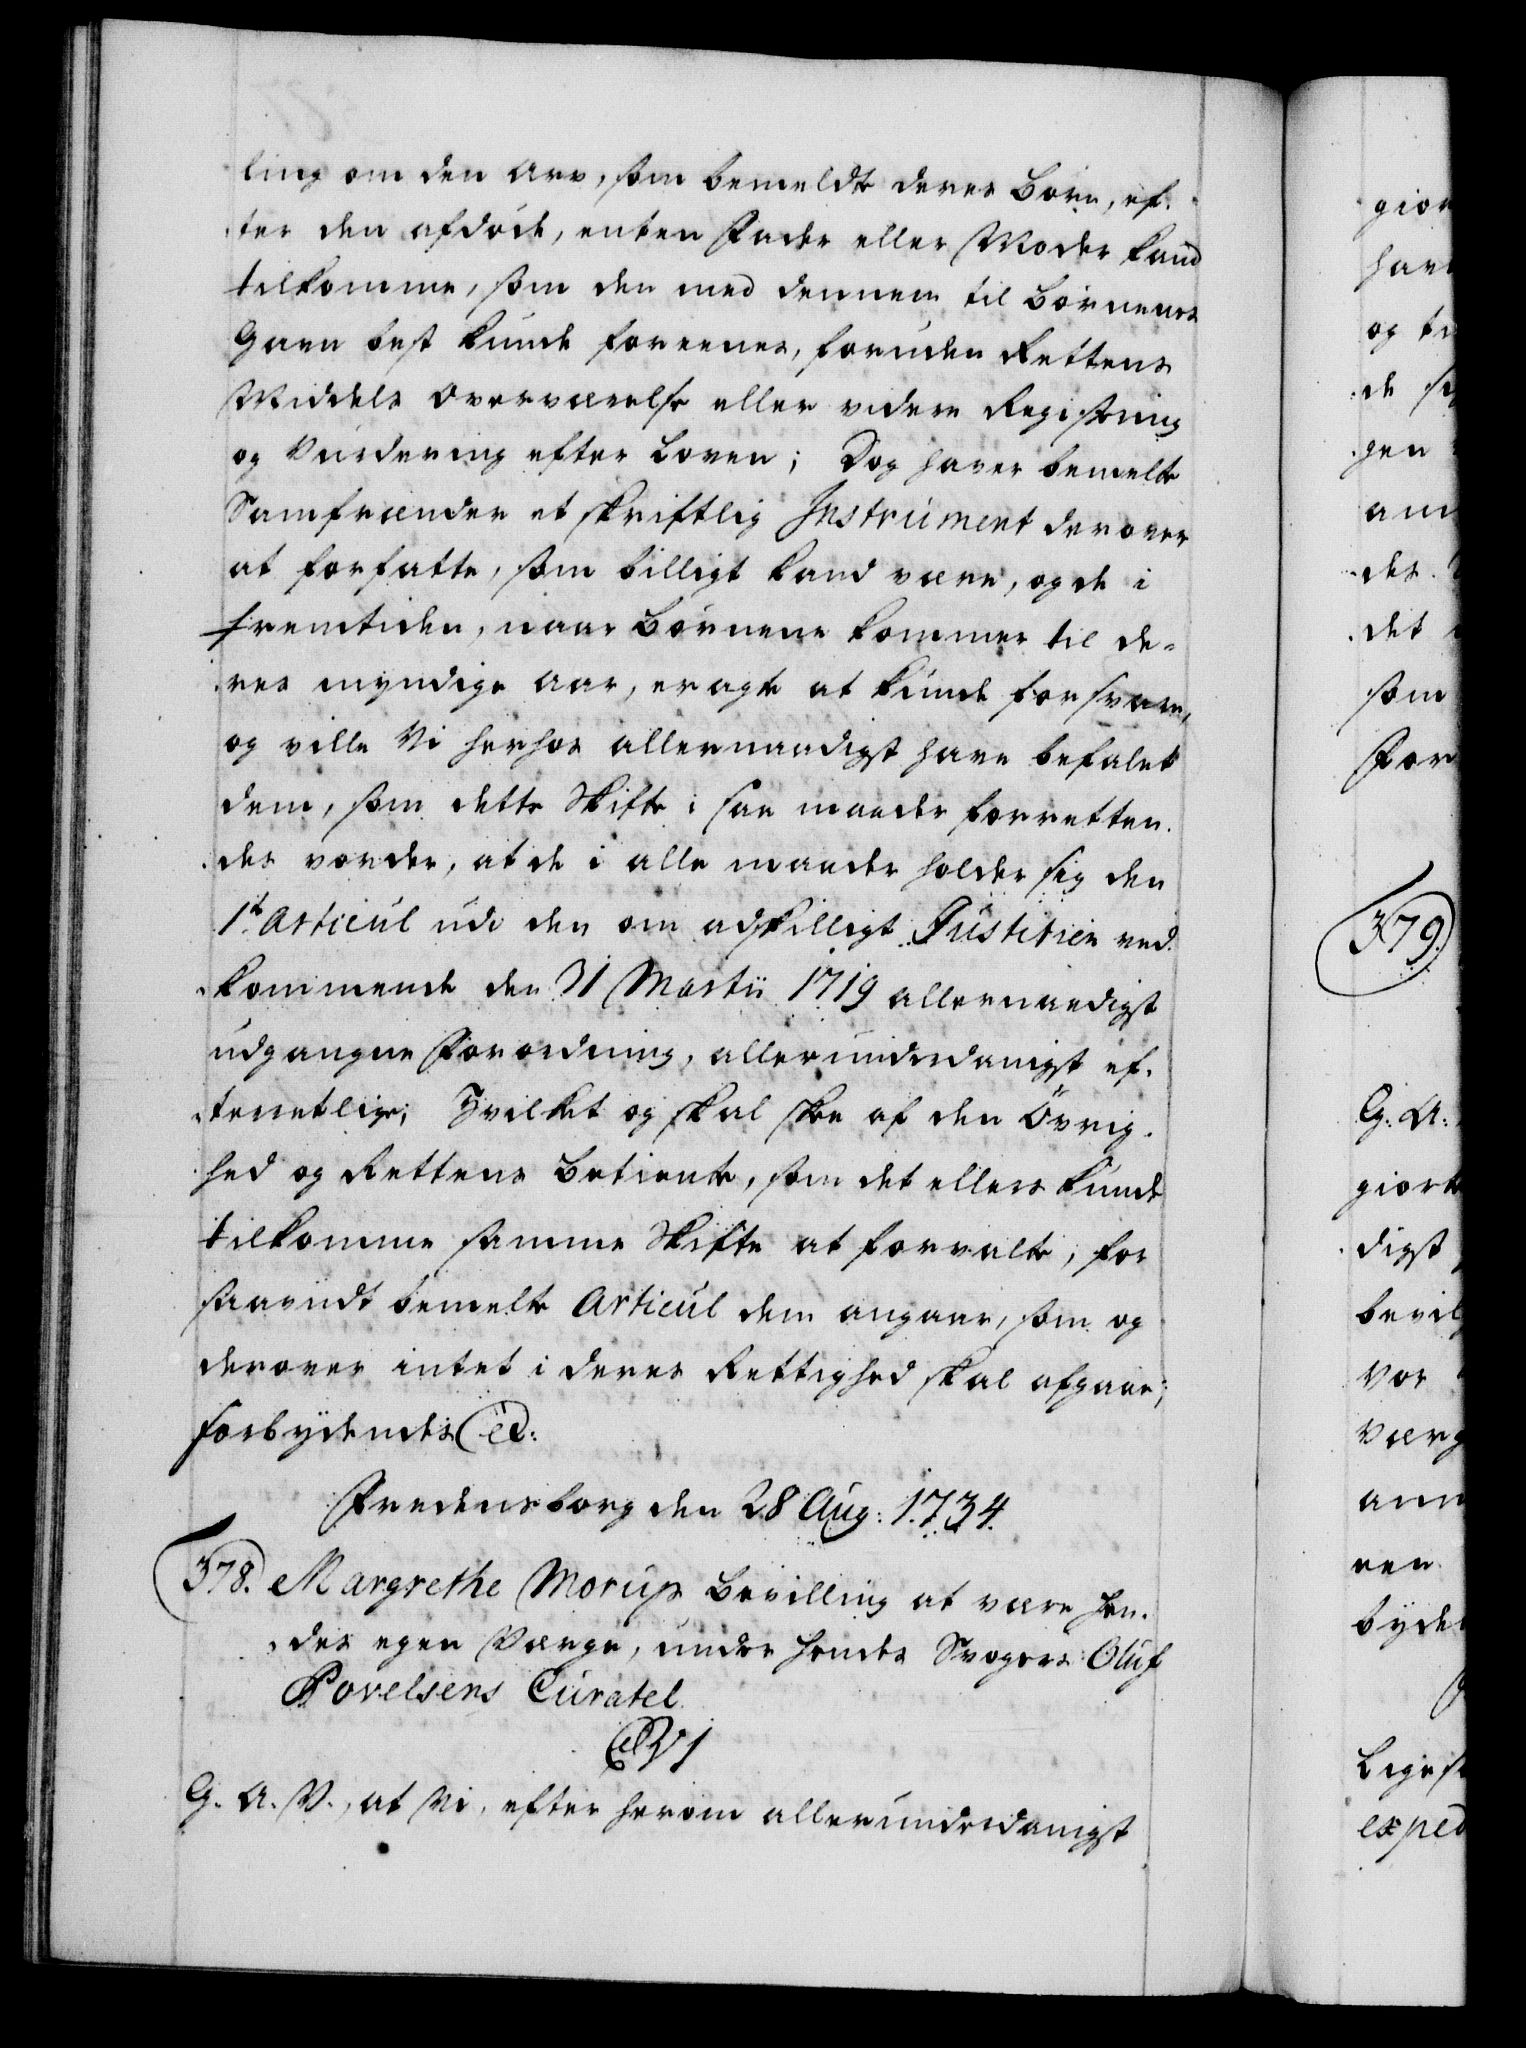 ling om den Arv, som bemeldte deres Børn, ef-
ter den afdøde, enten Fader eller Moder kand
tilkomme, som den med dennem til Børnenes
Gavn best kunde foreenes, foruden Rettens
Middels Overværelse eller videre Registering
og Vurdering efter Loven; Dog haver bemelte
Samfrænder et skriftlig Instrument derover
at forfatte, som billigt kand være, og de i
fremtiden, naar Børnene kommer til de-
res myndige Aar, eragte at kunde forsvare,
og ville Vi herhos allernaadigst have befalet
dem, som dette Skifte i saa maader forretten-
des vorder, at de i alle maader holder sig den
1te Articul udi den om adskilligt Justitien ved-
kommende den 31 Martii 1719 allernaadigst
udgangne Forordning, allerunderdanigst ef-
terretlige; Hvilket og skal skee af den Øvrig-
hed og Rettens Betiente, som det ellers kunde
tilkomme samme Skifte at forvalte, for
saavidt bemelte Articul dem angaaer, som og
derover intet i deres Rettighed skal afgaae;
forbydendes etc:
Fredensborg den 28 Aug: 1734.
378. Margrethe Morups Bevilling at være hen-
des egen Værge, under hendes Svogers Oluf
Povelsens Curatel.
C VI
G. A. V., at Vi, efter herom allerunderdanigst
gior
have
og
de
gen
am
des.
det
som
For
379.
G: A:
giort
digst
bevil
Vor
værg
ann
ren
byde
Liges
exped